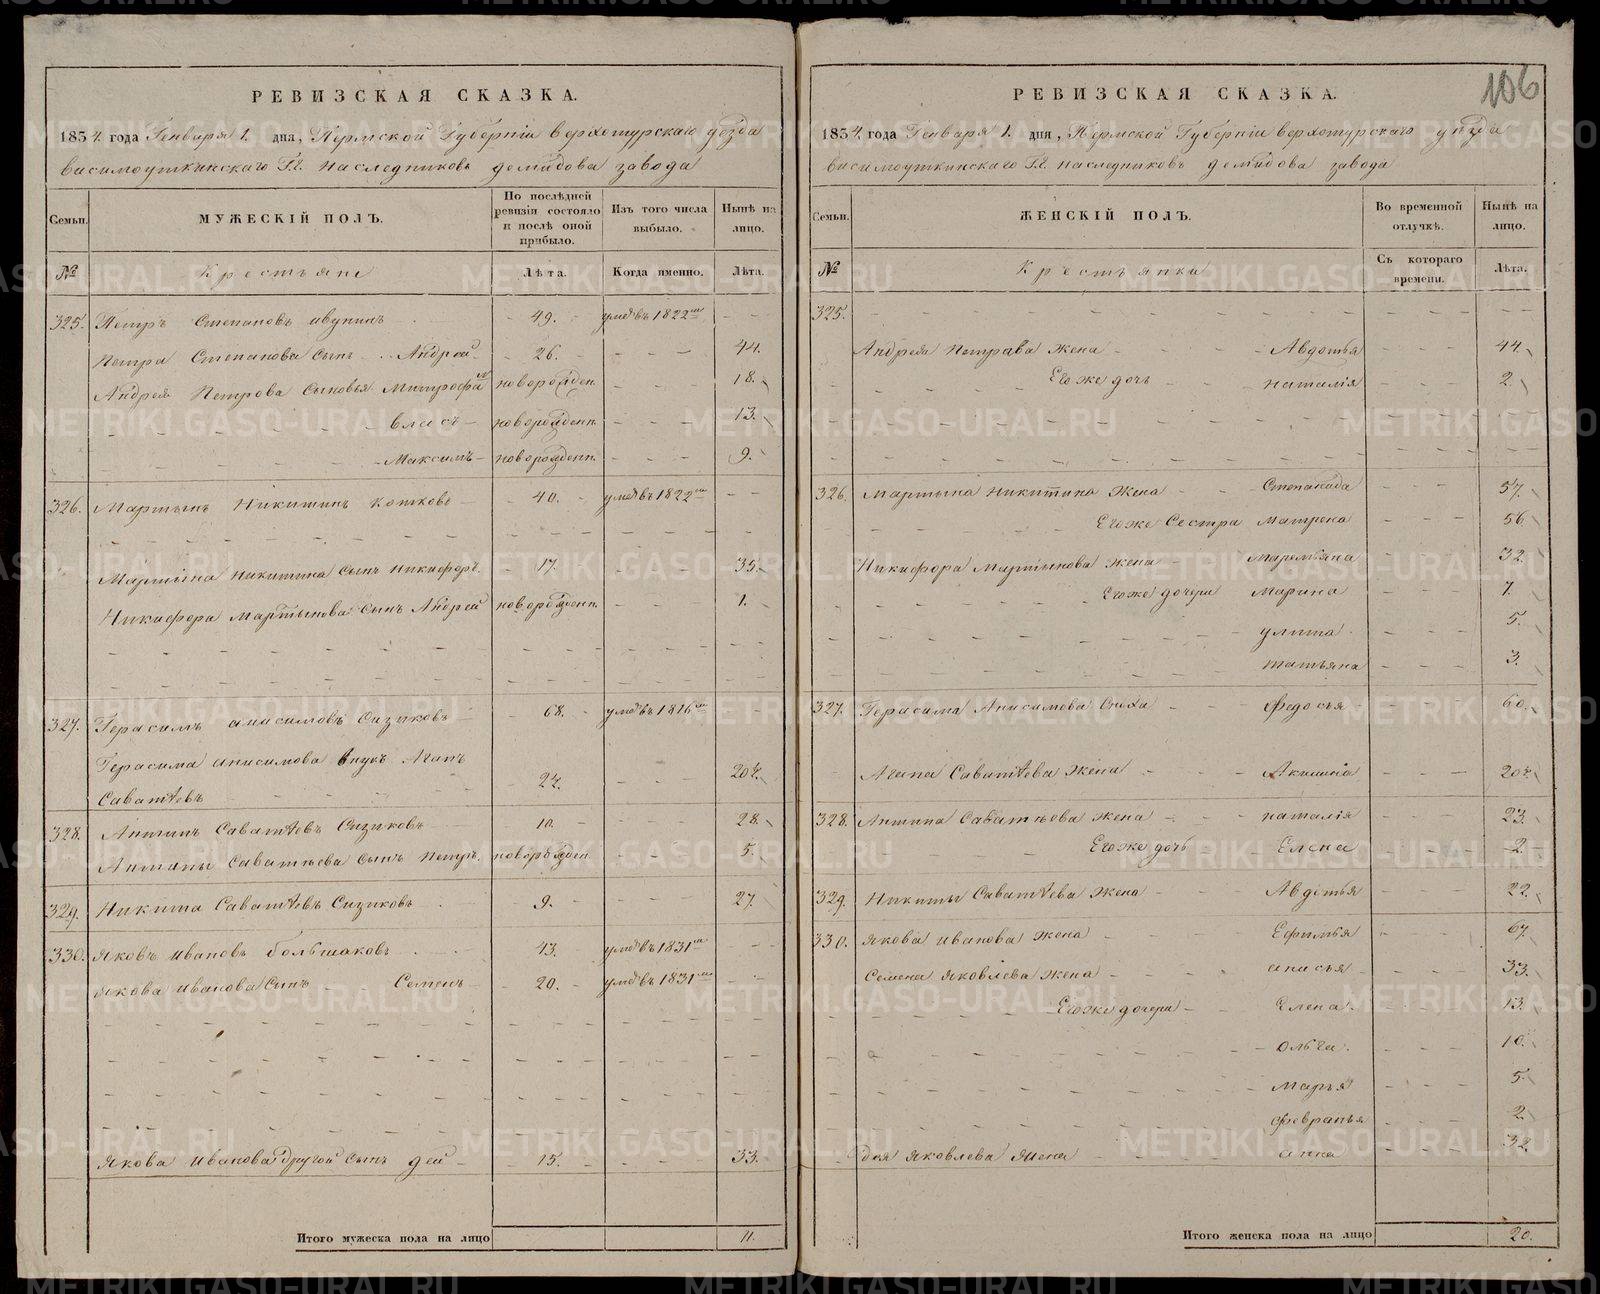 106
РЕВИЗСКАЯ СКАЗКА.
1834. года Генваря 1. дня, Пермской Губерніи верхотурскаго уезда
висимоуткинскаго Г.г. наследниковъ демидова завода
Семьи.
МУЖЕСКІЙ ПОЛЪ.
По послѣдней ревизіи состояло и послѣ оной прибыло.
Изъ того числа выбыло.
Нынѣ на лицо.
№
Крестьяне
Лѣта.
Когда именно.
Лѣта.
325. Петръ Степановъ 49. умѣвъ 1822
Петра Степанова Сынъ Андрей 26. 44.
Андрея Петрова Сыновья Митрофанъ новорожден. 18.
власъ новорожденн. 13.
Максимъ новорожденн. 9.
326. Мартынъ Никитинъ котковъ 40. 1822
Мартына никитина сынъ никифоръ. 17. 35.
Никифора мартынова сынъ Андрей новорожденн. 1.
327. Герасимъ анисимовъ Сизиковъ 68. 1816
Герасима анисимова внукъ Агапъ
Саватѣевъ 24. 20
328. Антипъ Саватѣевъ Сизиковъ 10. 28.
Антипы Саватѣева Сынъ петръ. новорожден. 5.
329. Никита Саватѣевъ Сизиковъ 9. 27.
330. яковъ ивановъ большаковъ 43. 1831
якова иванова Сынъ Семенъ 20. 1831
якова иванова другой сынъ 15. 33.
Итого мужеска пола на лицо 11.
РЕВИЗСКАЯ СКАЗКА.
1834. года Генваря 1. дня, Пермской Губерніи верхотурскаго уезда
висимоуткинскаго Г.г. наследниковъ демидова завода
Семьи.
ЖЕНСКІЙ ПОЛЪ.
Во временной отлучкѣ.
Нынѣ на лицо.
№
Крестьянки
Съ котораго времени.
Лѣта.
325.
Андрея Петрава жена Авдотья 44.
Егоже дочь наталія 2.
326. Мартына Никитина жена Степанида 57.
Егоже Сестра матрена 56.
Никифора Мартынова жена маремьяна 32.
Егоже дочери Марина 7.
улита. 5.
татьяна 3.
327. Герасима Анисимова Сноха федосья 60.
Агапа Саватѣева жена Акилина 20
328. Антипа Саватѣева жена наталія 23.
Егоже дочь Елена 2.
329. Никиты Саватѣева жена Авдотья 22.
330. якова иванова жена Ефимья 67.
Семена яковлева жена анисья 33.
Егоже дочери Елена. 13.
ольга. 10.
марья 5.
февранья 2.
яковлева жена анна 32.
Итого женска пола на лицо 20.
METRIKI.GASO-URAL.RU